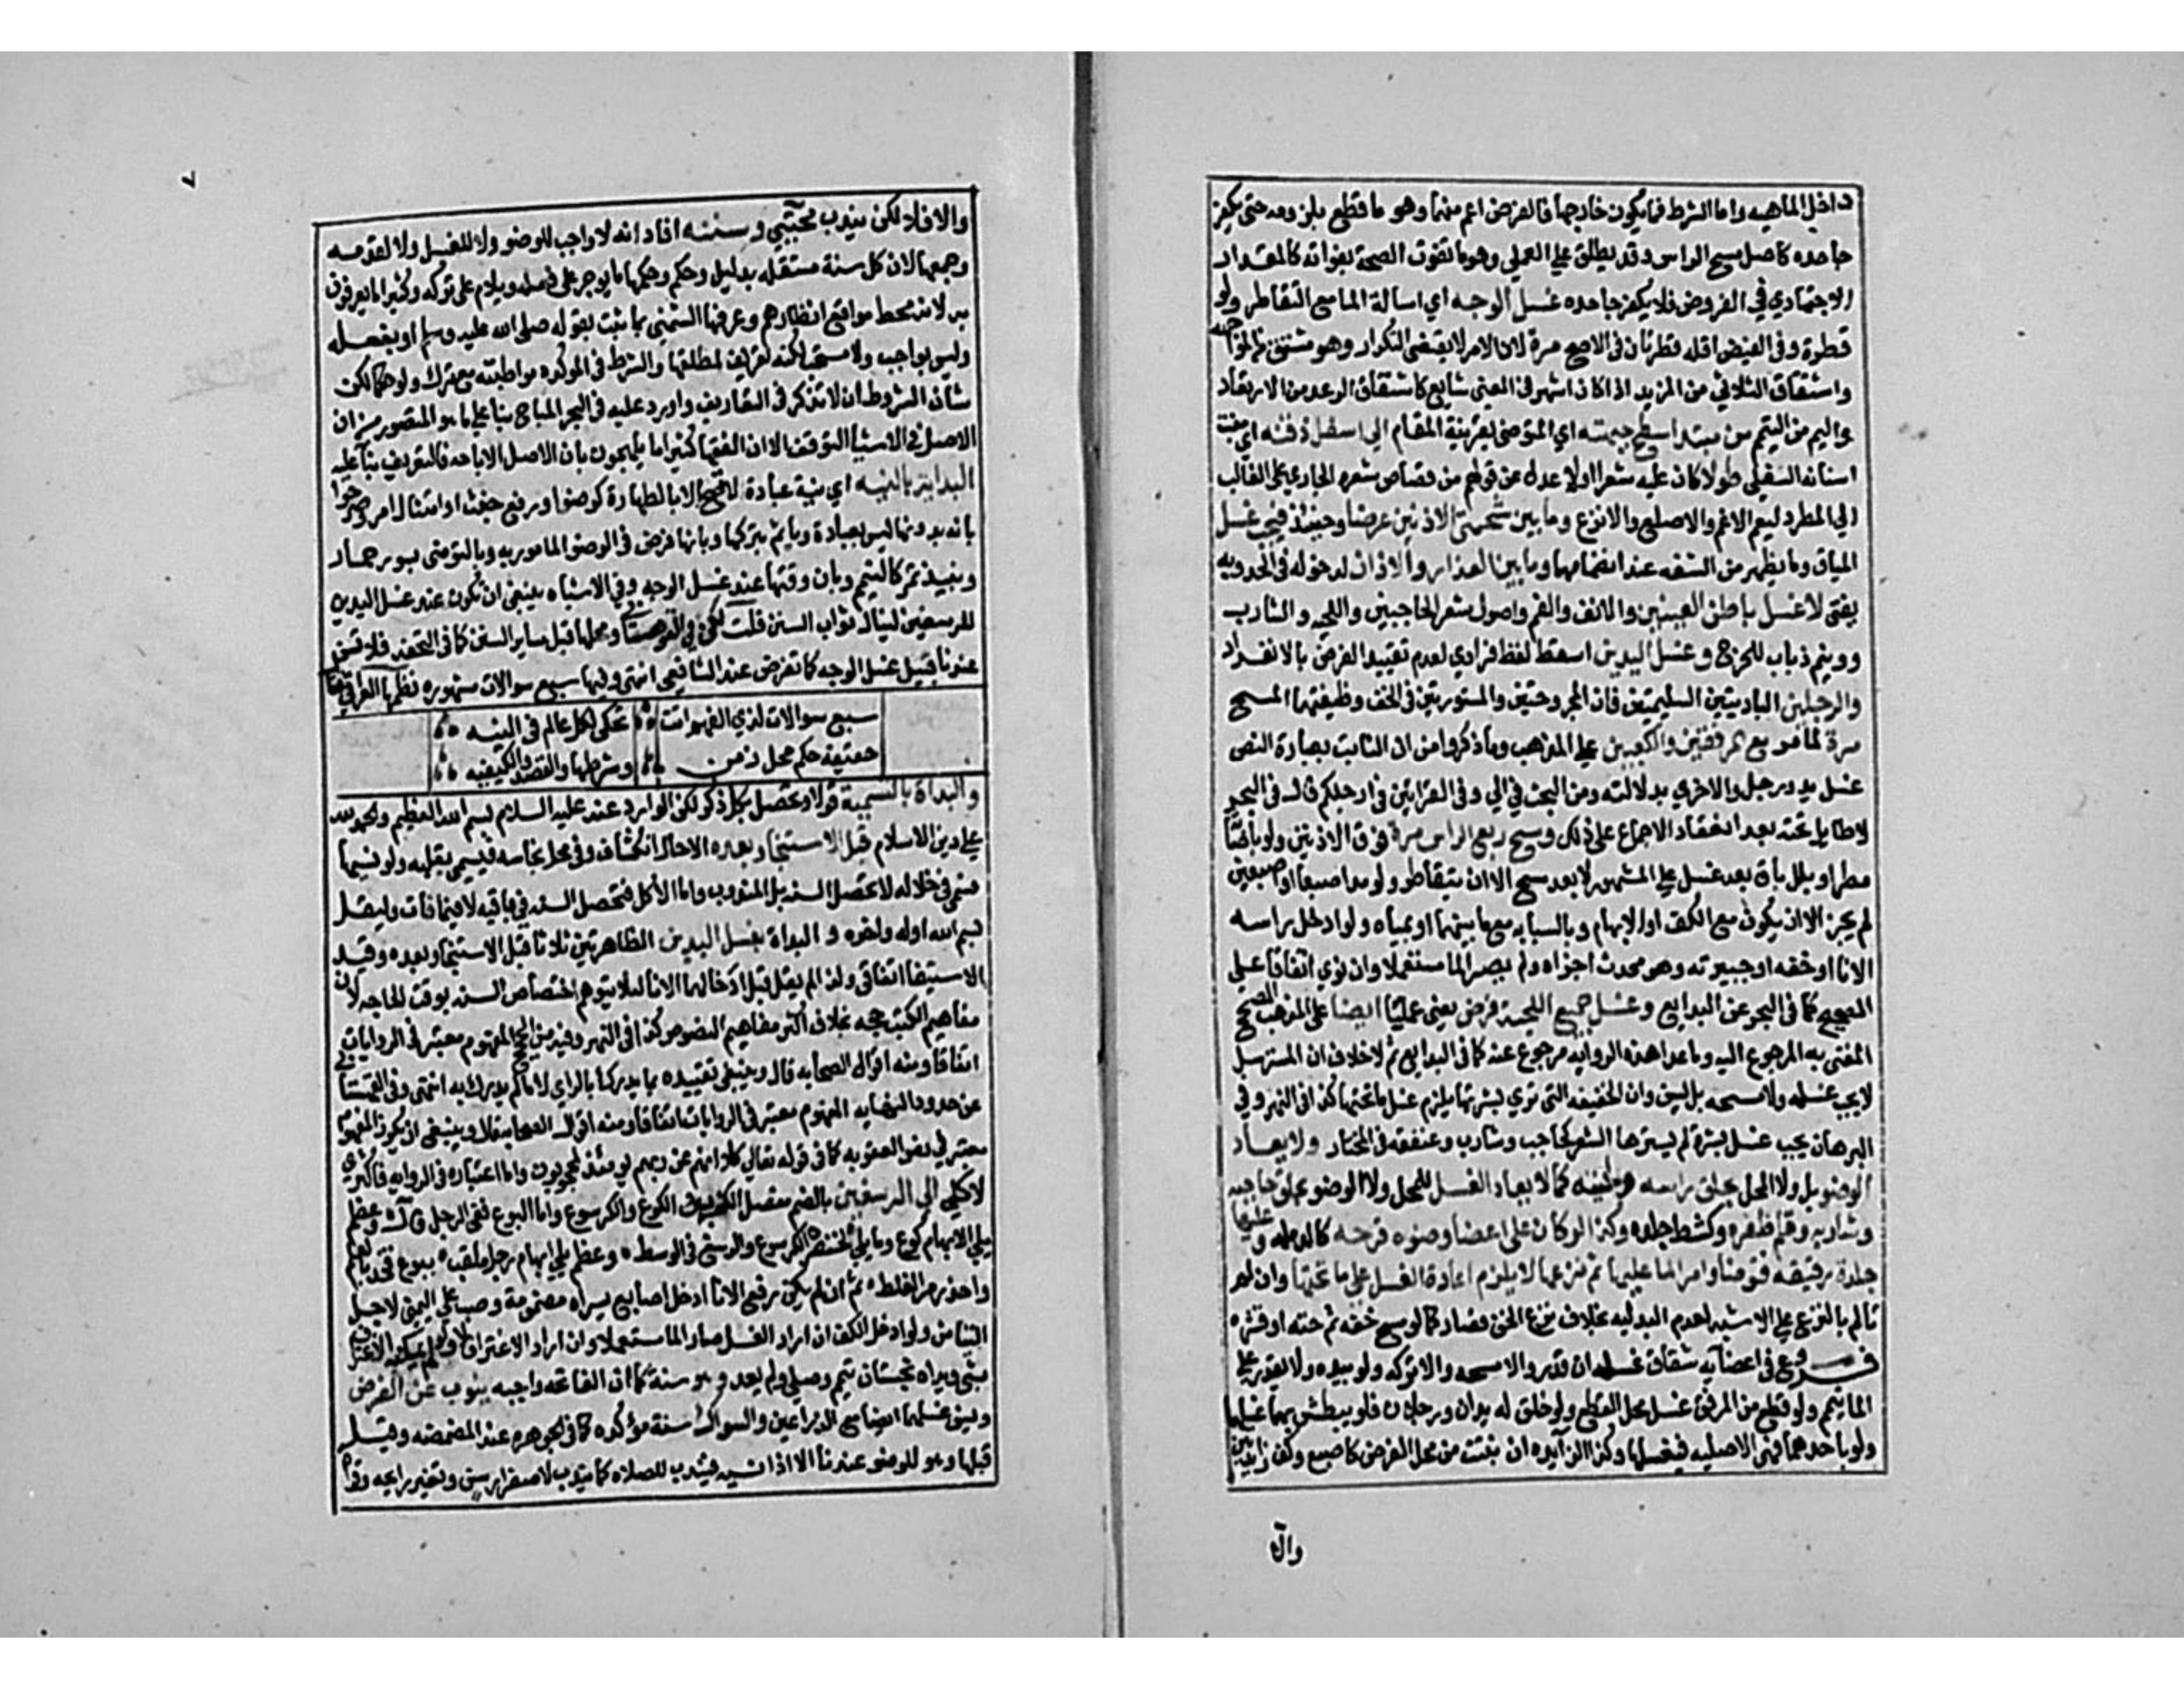 داخل الماهيه واما الشرط فما يكون خارجها فالفرض اعم منهما وهو ما قطع بلزومه حتى يكفر
جاحده كاصل مسح الراس وقد يطلق علي العملي وهو ما تفوت الصحة بفواته كالمقدار
الاجتهادي في الفروض فلا يكفر جاحده غسل الوجه اي اسالة الما مع التقاطر ولو
قطرة وفى الفيض اقله قطرتان فى الاصح مرة لان الامر لا يقتضى التكرار وهو مشتق من المواجهه
واشتقاق الثلاثي من المزيد اذا كان اشهر فى المعنى شايع كاشتقاق الرعد من الارتعاد
واليم من التيمم من مبتدا سطح جبهته اي المتوضى بقرينة المقام الي اسفل ذقنه اي منبت
اسنانه السفلى طولا كان عليه شعر اولا عدل عن قولهم من قصاص شعره الجاري على الغالب
الي المطرد ليعم الاغم والاصلع والانزع وما بين شحمتي الاذنين عرضا وحينئذ فيجب غسل
المياق وما يظهر من الشفه عند انضمامها وما بين العذار والاذن لدخوله فى الحد وبه
يفتى لا غسل باطن العينين والانف والفم واصول شعر الحاجبين واللحيه والشارب
وونيم ذباب للحرج وغسل اليدين اسقط لفظ فرادي لعدم تقييد الفرض بالانفراد
والرجلين الباديتين السليمتين فان المجروحتين والمستورتين فى الخف وظيفتهما المسح
مرة لما مر مع المرفقين والكعبين علي المذهب وما ذكروا من ان الثابت بعبارة النص
غسل يد ورجل والاخري بدلالته ومن البحث في الي وفى القراتين فى ارجلكم قال فى البحر
لا طايل تحته بعد انعقاد الاجماع على ذلك ومسح ربع الراس مرة فوق الاذنين ولو باصابة
مطر او بلل باق بعد غسل علي المشهور لا بعد مسح الا ان يتقاطر ولو مد اصبعا او اصبعين
لم يجز الا ان يكون مع الكف او الابهام وبالسبابه مع ما بينهما او بمياه ولو ادخل راسه
الانا او خفه او جبيرته وهو محدث اجزاه ولم يصر الما مستعملا وان نوي اتفاقا على
الصحيح كما فى البحر عن البدايع وغسل جميع اللحية فرض يعنى عمليا ايضا على المذهب الصحيح
المفتى به المرجوع اليه وما عدا هذه الروايه مرجوع عنه كما فى البدايع ثم لا خلاف ان المسترسل
لا يجب غسله ولا مسحه بل يسن وان الخفيفه التى تري بشرتها يلزم غسل ما تحتها كذا فى النهر وفي
البرهان يجب غسل بشرة لم يسترها الشعر كحاجب وشارب وعنفقه فى المختار ولا يعاد
الوضو بل ولا المحل بحلق راسه ولحيته كما لا يعاد الغسل للمحل ولا الوضو بحلق حاجبه
وشاربه وقلم ظفره وكشط جلده وكذا لو كان على اعضا وضوه قرحه كالدمله وعليها
جلدة رقيقه فتوضا وامر الما عليها ثم نزعها لا يلزم اعادة الغسل على ما تحتها وان
تالم بالنزع علي الاشبه لعدم البدليه بخلاف نزع الخف فصار كما لو مسح خفه ثم حته او قشره
فروع فى اعضايه شقاق غسله ان قدر والا مسحه والا تركه ولو بيده ولا يقدر على
الما تيمم ولو قطع من المرفق غسل محل القطع ولو خلق له يدان ورجلان فلو يبطش بهما غسلهما
ولو باحدهما فهى الاصليه فيغسلها وكذا الزايده ان نبتت من محل الفرض كاصبع وكف زايدين
والا
٧
والا فلا لكن يندب مجتبي وسننه افاد انه لا واجب للوضو ولا للغسل والا لقدمه
وجمعها لان كل سنة مستقله بدليل وحكم وحكمها ما يوجر على فعله ويلام على تركه وكثيرا ما يعرفون
به لانه محط مواقع انظارهم وعرفها الشمني بما ثبت بقوله صلى الله عليه وسلم او بفعله
وليس بواجب ولا مستحب لكنه تعريف لمطلقها والشرط فى الموكده مواظبته مع ترك ولو حكما لكن
شان الشروط ان لا تذكر فى التعاريف واورد عليه فى البحر المباح بنا علي ما هو المنصور من ان
الاصل فى الاشيا التوقف الا ان الفقها كثيرا ما يلهجون بان الاصل الاباحه فالتعريف بنا عليه
البداية بالنيه اي نية عبادة لا تصح الا بالطهارة كوضوا ورفع حدث او امتثال امر وصرحوا
بانه بدونها ليس بعبادة وياثم بتركها وبانها فرض فى الوضو المامور به وبالتوضى بسور حمار
ونبيذ تمر كالتيمم وبان وقتها عند غسل الوجه وفي الاشباه ينبغى ان تكون عند غسل اليدين
للرسغين لينال ثواب السنن قلت لكن في القهستاني ومحلها قبل ساير السنن كما فى التحفه فلا تسن
عندنا قبيل غسل الوجه كما تفرض عند الشافعي انتهى وفيها سبع سوالات مشهوره نظمها العراقي فقال
سبع سوالات لذي الفهم اتت تحكى لكل عالم فى النيه
حقيقة حكم محل زمن وشرطها والقصد والكيفيه
والبداة بالتسمية قولا وتحصل بكل ذكر لكن الوارد عنه عليه السلام بسم الله العظيم والحمد لله
علي دين الاسلام قبل الاستنجا وبعده الا حال انكشاف وفى محل نجاسه فيسمى بقلبه ولو نسيها
فسمى فى خلاله لا تحصل السنه بل المندوب واما الاكل فتحصل السنه في باقيه لا فيما فات وليقل
بسم الله اوله واخره و البداة بغسل اليدين الطاهرتين ثلاثا قبل الاستنجا وبعده وقيد
الاستيقا اتفاقى ولذا لم يقل قبل ادخالهما الانا لئلا يتوهم اختصاص السنه بوقت الحاجه لان
مفاهيم الكتب حجه بخلاف اكثر مفاهيم النصوص كذا فى النهر وفيه من الحج المفهوم معتبر فى الروايات
اتفاقا ومنه اقوال الصحابه قال وينبغى تقييده بما يدرك بالراي لا ما لم يدرك به انتهى وفى القهستاني
عن حدود النهايه المفهوم معتبر فى الروايات اتفاقا ومنه اقوال الصحابه قال وينبغى ان يكون المفهوم
معتبر في نص العقوبه كما فى قوله تعالي كلا انهم عن ربهم يومئذ لمحجوبون واما اعتباره فى الروايه فاكثري
لا كلي الى الرسغين بالضم مفصل الكف بين الكوع والكرسوع واما البوع ففى الرجل قال وعظم
يلي الابهام كوع وما يلي لخنصره الكرسوع والرسغ فى الوسط وعظم يلي ابهام رجل ملقب ببوع فخذ بالعلم
واحذر من الغلط ثم ان لم يمكن رفع الانا ادخل اصابع يسراه مضمومة وصب علي اليمنى لاجل
التيامن ولو ادخل الكف ان اراد الغسل صار الما مستعملا وان اراد الاغتراف لا ولو لم يمكنه الاغتراف
بشى ويداه نجستان تيمم وصلى ولم يعد وهو سنة كما ان الفاتحه واجبه ينوب عن الفرض
ويسن غسلهما ايضا مع الذراعين والسواك سنة مؤكده كما فى الجوهره عند المضمضه وقيل
قبلها وهو للوضو عندنا الا اذا نسيه فيندب للصلاه كما يندب لاصفرار سن وتغير رايحه وقراة